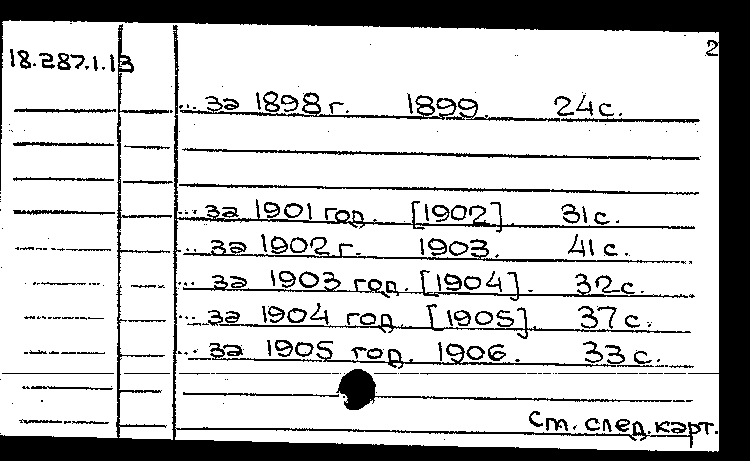 2
18.287.1.13
... за 1898 г. 1899. 24 с.
... за 1901 год. [1902]. 31 с.
... за 1902 г. 1903. 41 с.
... за 1903 год. [1904]. 32 с.
... за 1904 год [1905]. 37 с.
... за 1905 год. 1906. 33 с.
Ст. след. карт.